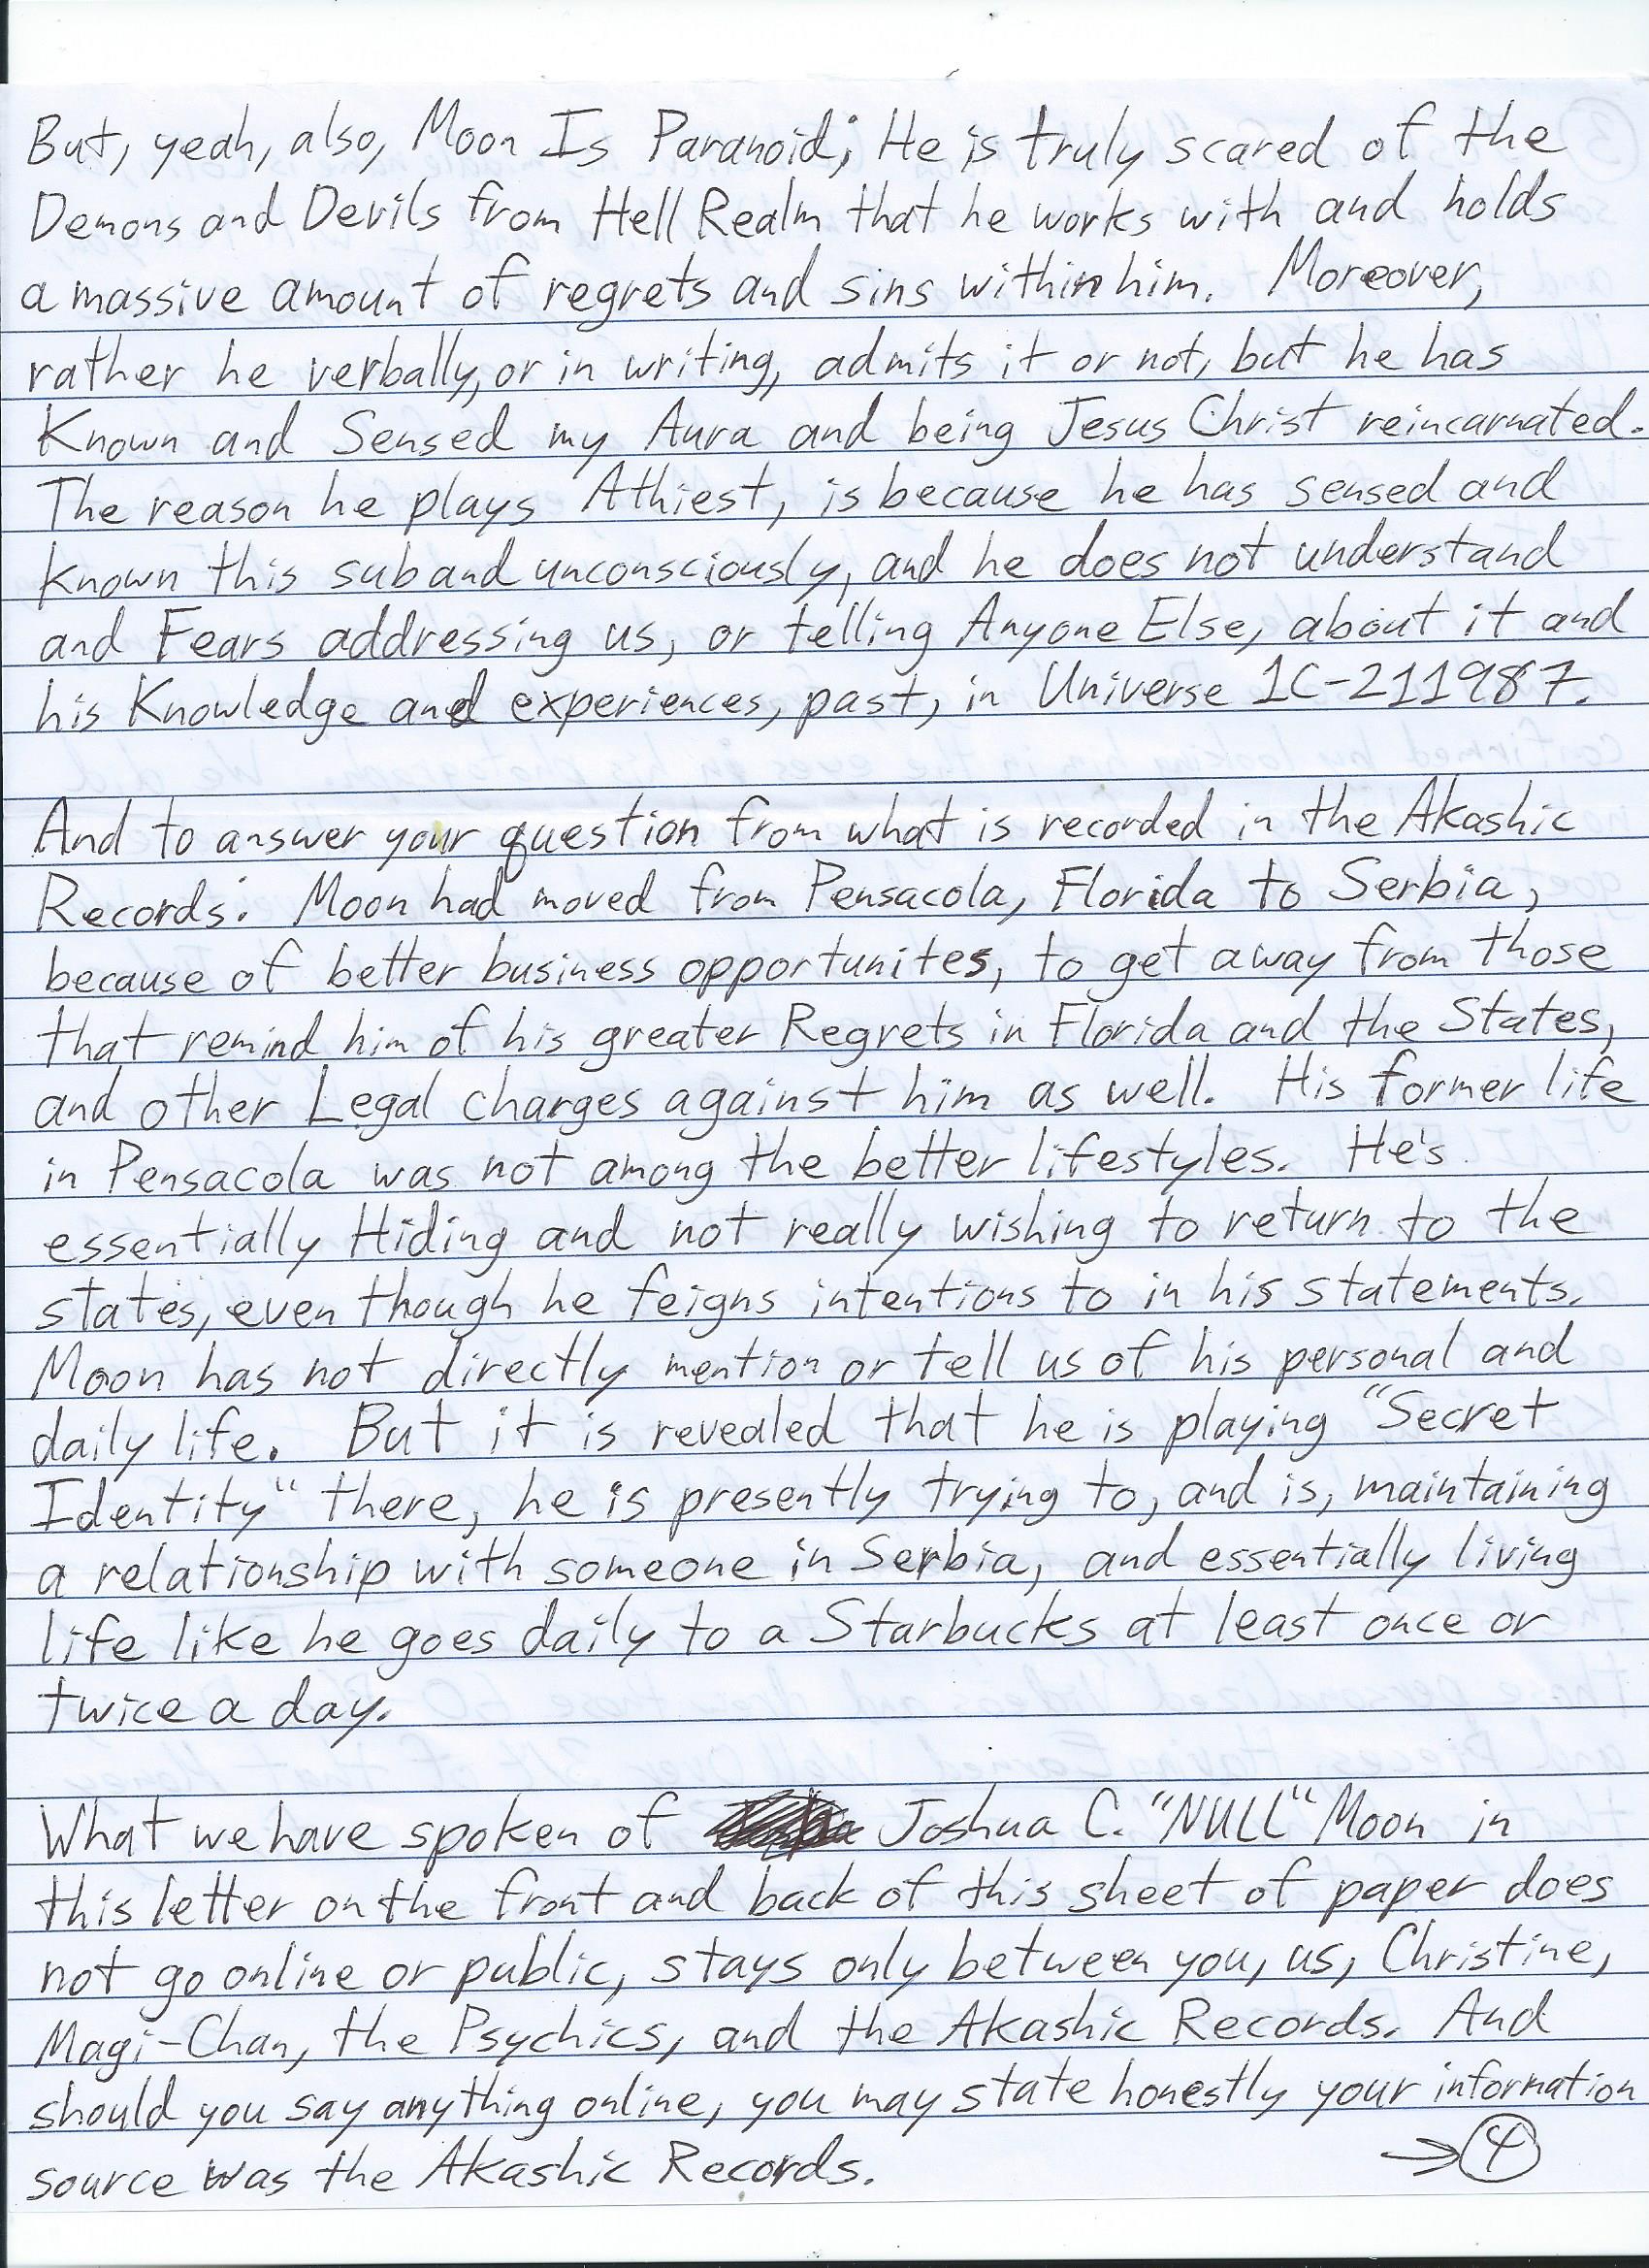 But, yeah, also, Moon Is Paranoid; He is truly scared of the
Demons and Devils from Hell Realm that he works with and holds
a massive amount of regrets and sins within him. Moreover,
rather he verbally, or in writing, admits it or not, but he has
Known and Sensed my Aura and being Jesus Christ reincarnated.
The reason he plays Athiest, is because he has sensed and
known this sub and unconsciously, and he does not understand
and Fears addressing us, or telling Anyone Else, about it and
his Knowledge and experiences, past, in Universe 1C-211987.
And to answer your question from what is recorded in the Akashic
Records: Moon had moved from Pensacola, Florida to Serbia,
because of better business opportunites, to get away from those
that remind him of his greater Regrets in Florida and the States,
and other Legal charges against him as well. His former life
in Pensacola was not among the better lifestyles. He's
essentially Hiding and not really wishing to return to the
states, even though he feigns intentions to in his statements.
Moon has not directly mention or tell us of his personal and
daily life. But it is revealed that he is playing "Secret
Identity" there, he is presently trying to, and is, maintaining
a relationship with someone in Serbia, and essentially living
life like he goes daily to a Starbucks at least once or
twice a day.
What we have spoken of Joshua C. "NULL" Moon in
this letter on the front and back of this sheet of paper does
not go online or public, stays only between you, us, Christine,
Magi-Chan, the Psychics, and the Akashic Records. And
should you say anything online, you may state honestly your information
source was the Akashic Records. → 4